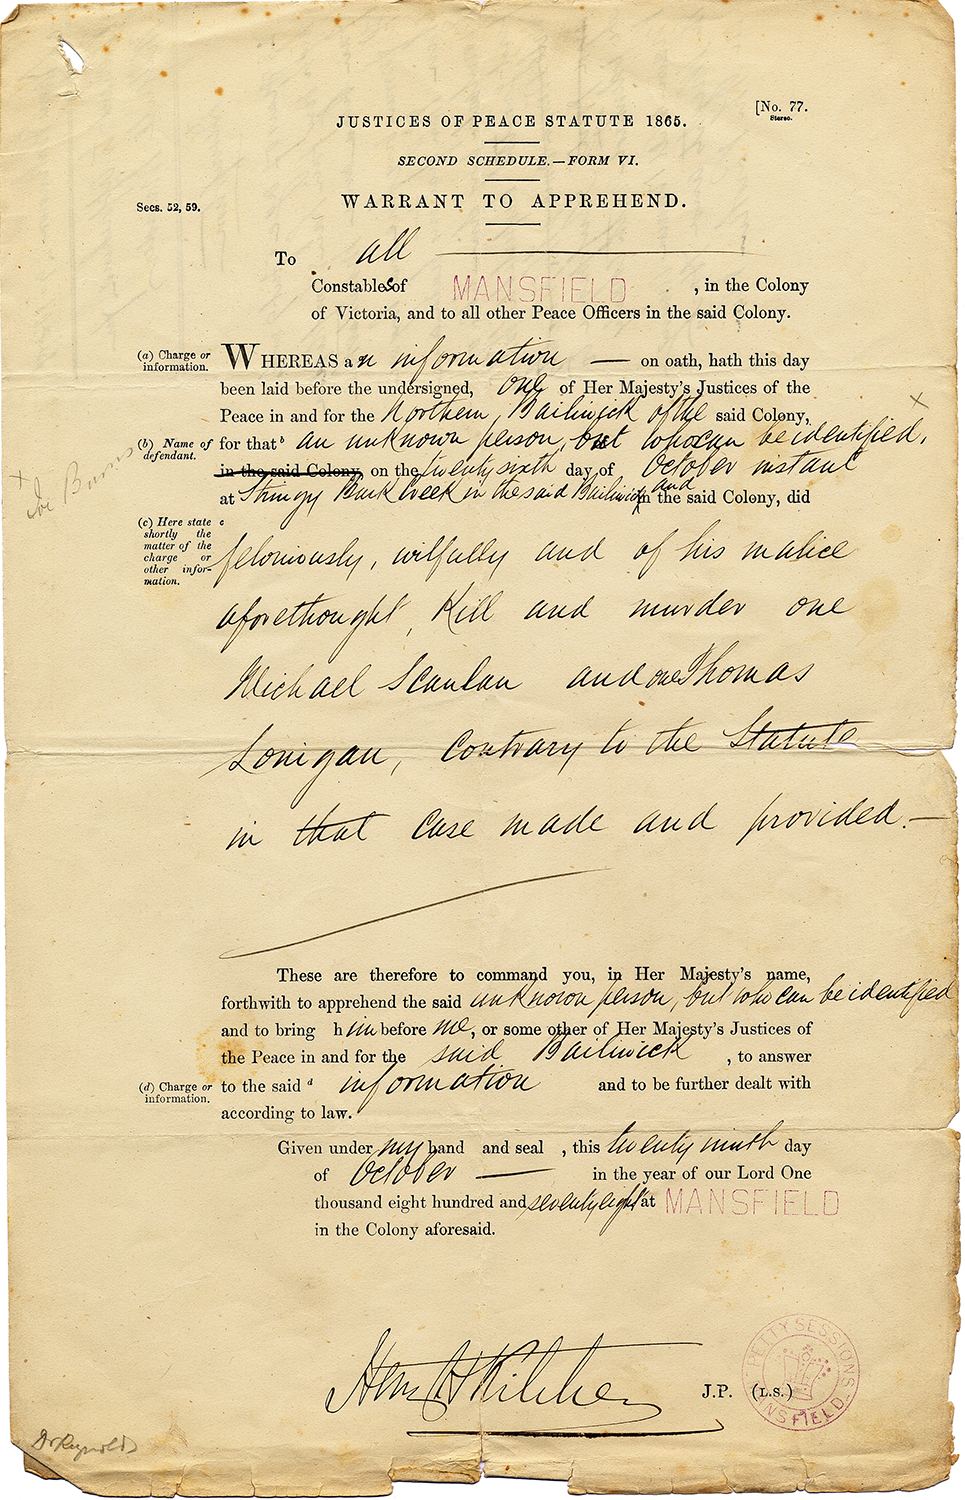 [No. 77.
Stereo.
JUSTICES OF PEACE STATUTE 1865.
SECOND SCHEDULE.—FORM VI.
Secs. 52, 59.
WARRANT TO APPREHEND.
To all
Constables of MANSFIELD , in the Colony
of Victoria, and to all other Peace Officers in the said Colony.
(a) Charge or information.
WHEREAS an information — on oath, hath this day
been laid before the undersigned, one of Her Majesty's Justices of the
Peace in and for the Northern Bailiwick of the said Colony,
(b) Name of defendant.
for that b an unknown person, but who can be identified,
in the said Colony, on the twenty sixth day of October instant
at Stringy Bark Creek in the said Bailiwick and in the said Colony, did
(c) Here state shortly the matter of the charge or other information.
c
feloniously, wilfully and of his malice
aforethought, Kill and murder one
Michael Scanlan and one Thomas
Lonigan, Contrary to the Statute
in that case made and provided.—
These are therefore to command you, in Her Majesty's name,
forthwith to apprehend the said unknown person, but who can be identified
and to bring him before me, or some other of Her Majesty's Justices of
the Peace in and for the said Bailiwick , to answer
(d) Charge or information.
to the said d information and to be further dealt with
according to law.
Given under my hand and seal , this twenty ninth day
of October — in the year of our Lord One
thousand eight hundred and seventy eight at MANSFIELD
in the Colony aforesaid.
J.P. (L.S.)
PETTY SESSIONS
MANSFIELD
Dr Reynolds